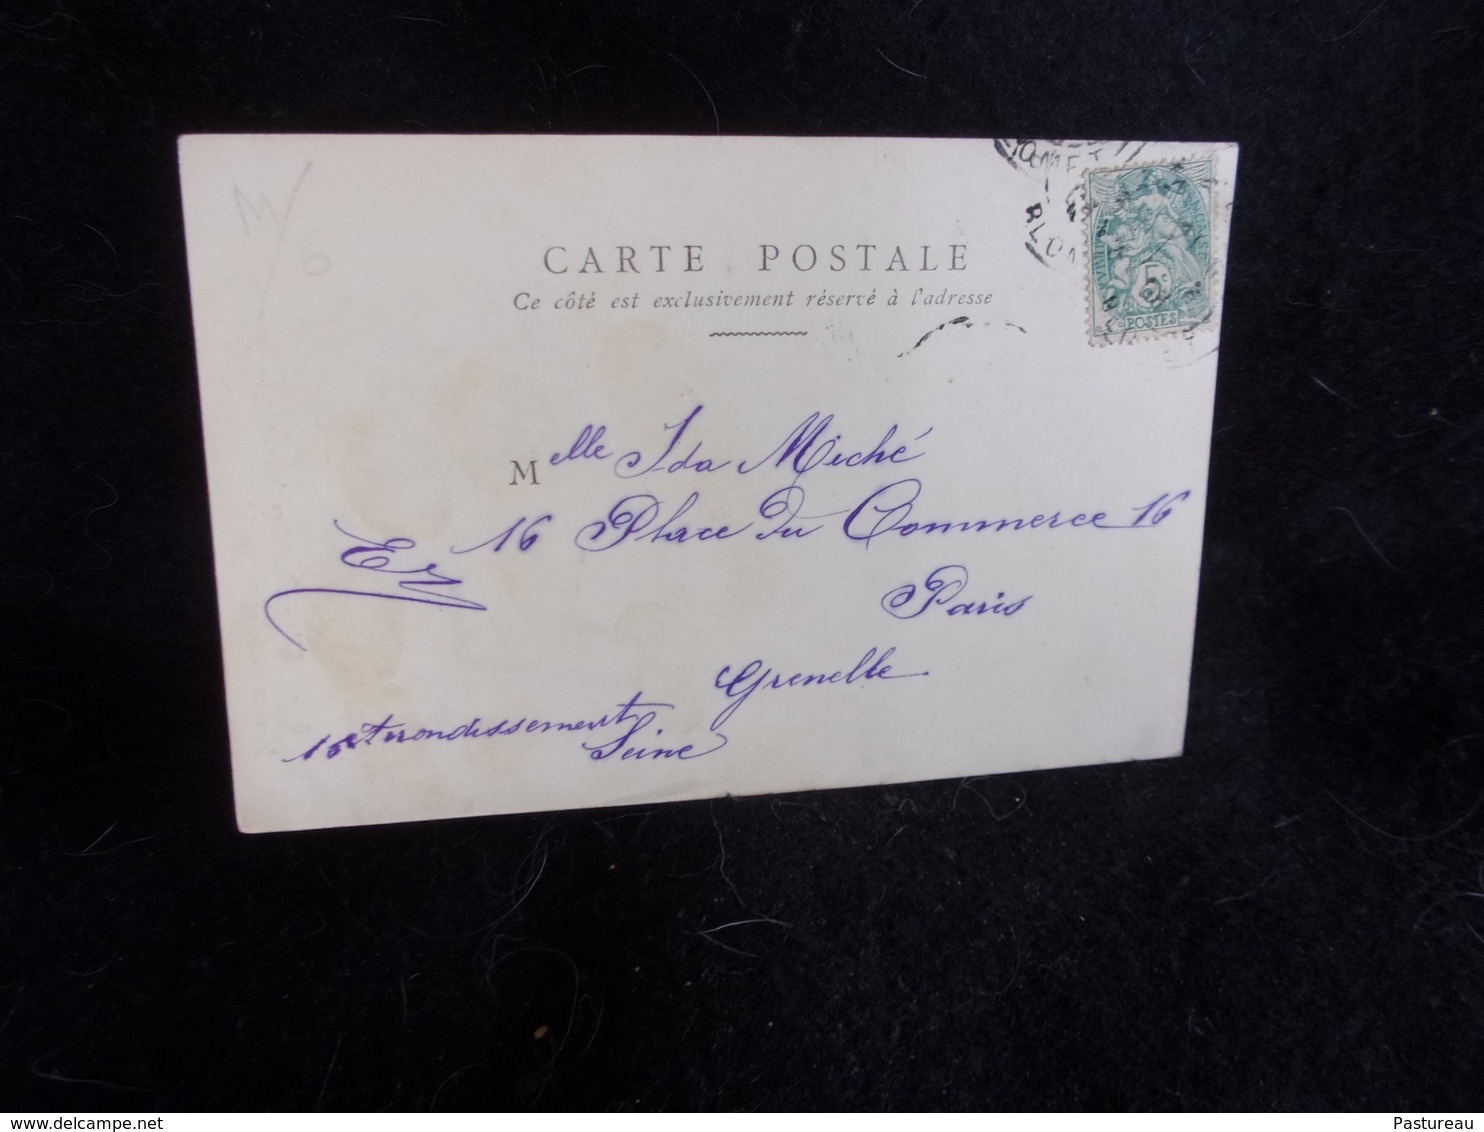 M/6
CARTE POSTALE
Ce côté est exclusivement réservé à l'adresse
5c
POSTES
Melle Ida Miché
16 Place Du Commerce 16
Paris
Grenelle
15e Arrondissement
Seine
www.delcampe.net
Pastureau